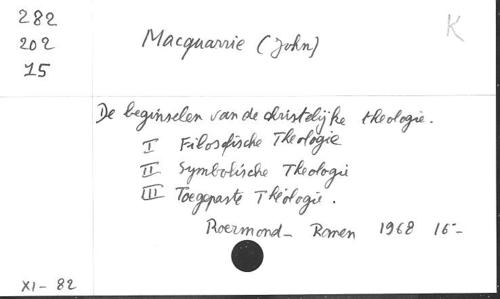 282
202
15
Macquarrie (John)
K
De beginselen van de christelijke theologie.
I Filosofische Theologie
II Symbolische Theologie
III Toegepaste Théologie.
Roermond - Romen 1968 16-
XI - 82